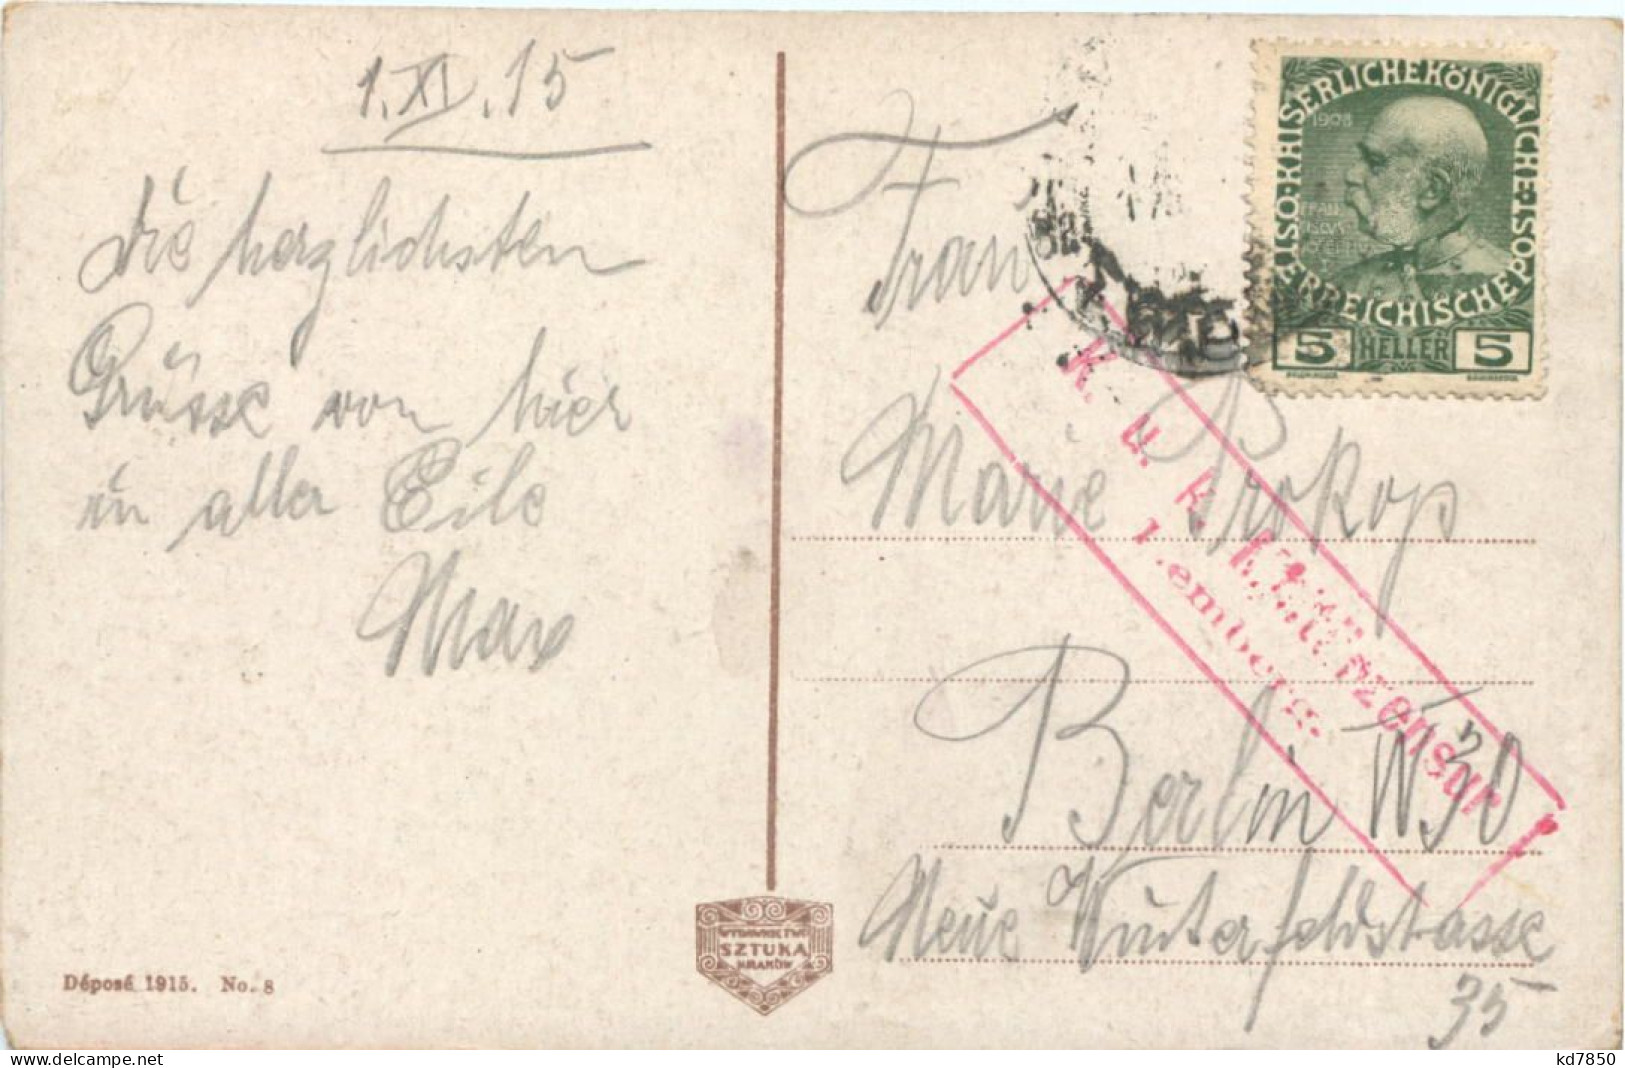 1.XI.15
Die herzlichsten
Grüsse von hier
in aller Eile
Max
Déposé 1915. No. 8
WYDAWNICTWO
SZTUKA
KRAKÓW
KAISERLICHEKÖNIGLICHE
ÖSTERREICHISCHEPOST
1908
5 HELLER 5
Frau
Marie Prokop
K. u. k. Militärzensur
Lemberg.
Berlin W30
Neue Winterfeldstrasse
35
kd7850